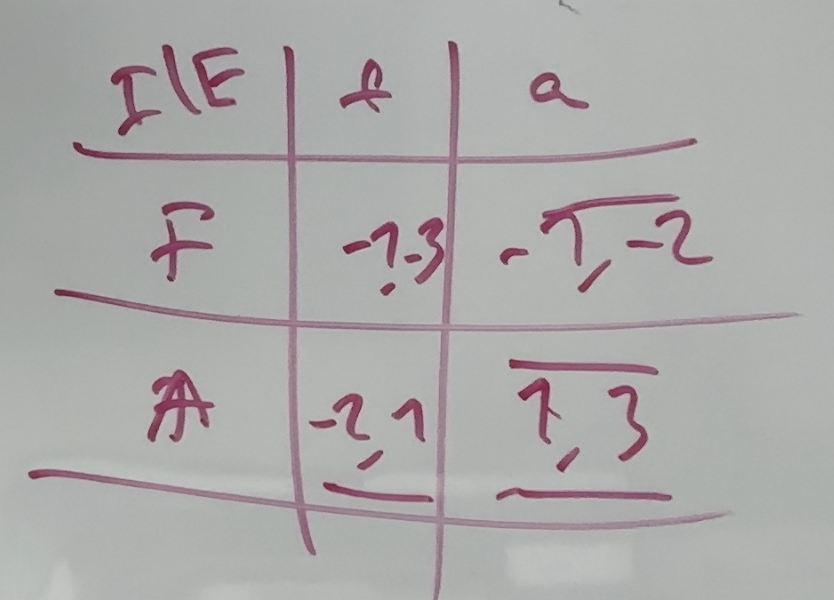 I\E f a
F -1,-3 -1,-2
A -2,1 1,3